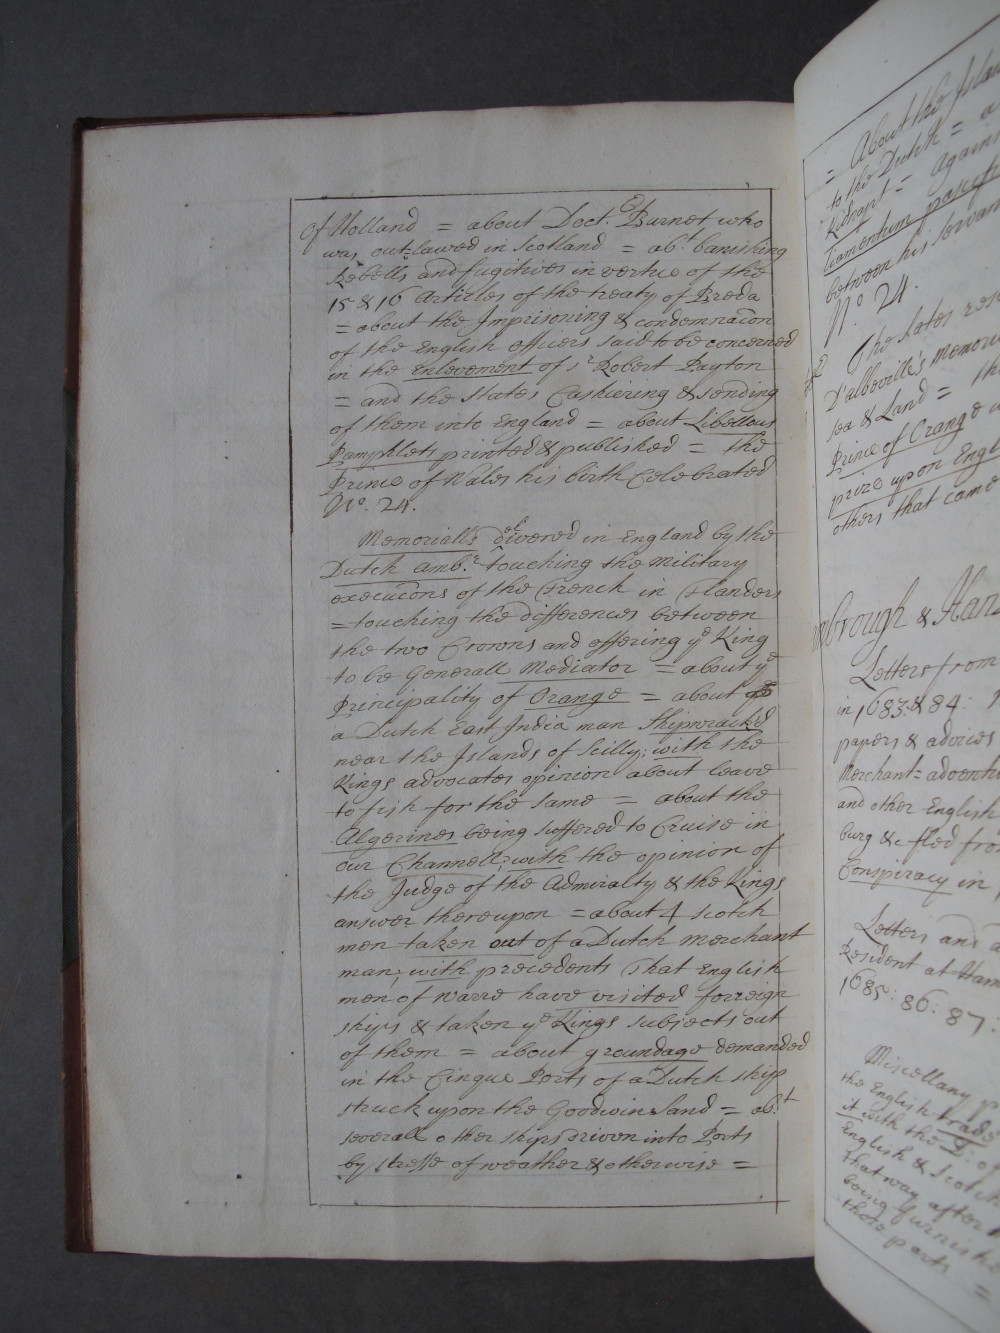 of Holland = about Doct.r Burnet who
was out-lawed in Scotland = ab.t banishing
Rebells and fugitives in vertue of the
15 & 16 Articles of the treaty of Breda
= about the Imprisoning & condemnacon
of the English officers said to be concerned
in the Enlevement of Sr Robert Payton
= and the States Cashiering & sending
of them into England = about Libellous
Pamphlets printed & published = the
Prince of Wales his birth Celebrated
No. 24.
Memorialls delivered in England by the
Dutch Amb.r touching the Military
execucons of the French in Flanders
= touching the differences between
the two Crowns and offering ye King
to be Generall Mediator = about ye
Principality of Orange = about
a Dutch East India man Shipwrackd
near the Islands of Scilly; with the
Kings advocates opinion about leave
to fish for the same = about the
Algerines being suffered to Cruise in
our Channell; with the opinion of
the Judge of the Admiralty & the Kings
answer thereupon = about 4 Scotch
men taken out of a Dutch Merchant
man; with precedents that English
men of warre have visited forreign
ships & taken ye Kings subjects out
of them = about groundage demanded
in the Cinque Ports of a Dutch ship
struck upon the Goodwin Sand = ab.t
severall other ships driven into Ports
by stresse of weather & otherwise =
= About the Islan
to the Dutch = a
Kidnapt = Again
liamentum pacif
between his servan
No. 24.
The States res
D'albeville's Memori
sea & Land = th
Prince of Orange
prize upon Engl
others that came
brough & Han
Letters from
in 1683: & 84:
papers & advices
Merchant-adventu
and other English
burg &c fled from
Conspiracy in
Letters and
Resident at Ham
1685: 86: 87:
Miscellany p
the English trade
it with the D: of
English & Scotch
that way after
being furnishe
those parts =